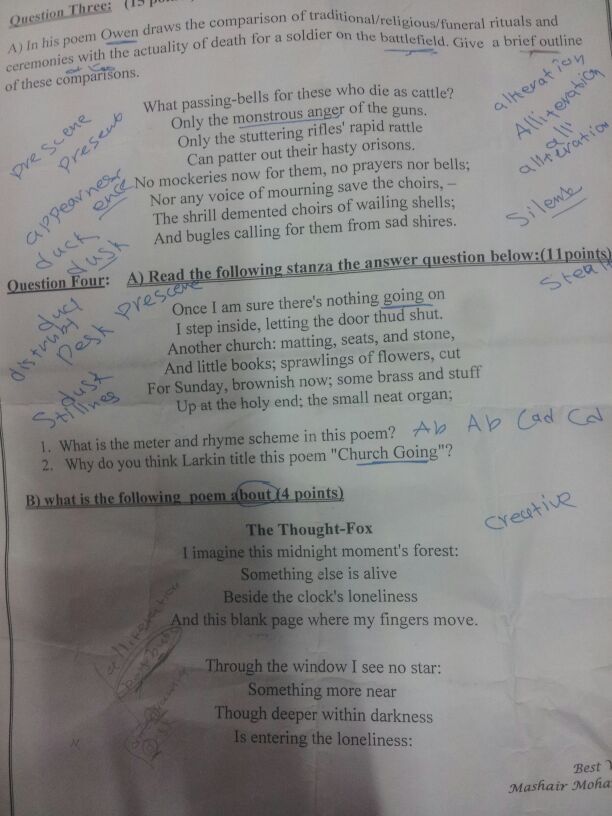 Question Three: (15
A) In his poem Owen draws the comparison of traditional/religious/funeral rituals and
ceremonies with the actuality of death for a soldier on the battlefield. Give a brief outline
of these comparisons.
What passing-bells for these who die as cattle?
Only the monstrous anger of the guns.
Only the stuttering rifles' rapid rattle
Can patter out their hasty orisons.
No mockeries now for them, no prayers nor bells;
Nor any voice of mourning save the choirs, –
The shrill demented choirs of wailing shells;
And bugles calling for them from sad shires.
prescene
present
appearness
ence
duck
dusk
alteration
Alliteration
alli
alteration
Silent
Question Four: A) Read the following stanza the answer question below:(11points)
Once I am sure there's nothing going on
I step inside, letting the door thud shut.
Another church: matting, seats, and stone,
And little books; sprawlings of flowers, cut
For Sunday, brownish now; some brass and stuff
Up at the holy end; the small neat organ;
prescene
Desk
dusk
Stillines
1. What is the meter and rhyme scheme in this poem? Ab Ab Cad Cd
2. Why do you think Larkin title this poem "Church Going"?
B) what is the following poem about (4 points)
Creative
The Thought-Fox
I imagine this midnight moment's forest:
Something else is alive
Beside the clock's loneliness
And this blank page where my fingers move.
Through the window I see no star:
Something more near
Though deeper within darkness
Is entering the loneliness:
alliteration
Best
Mashair Moha